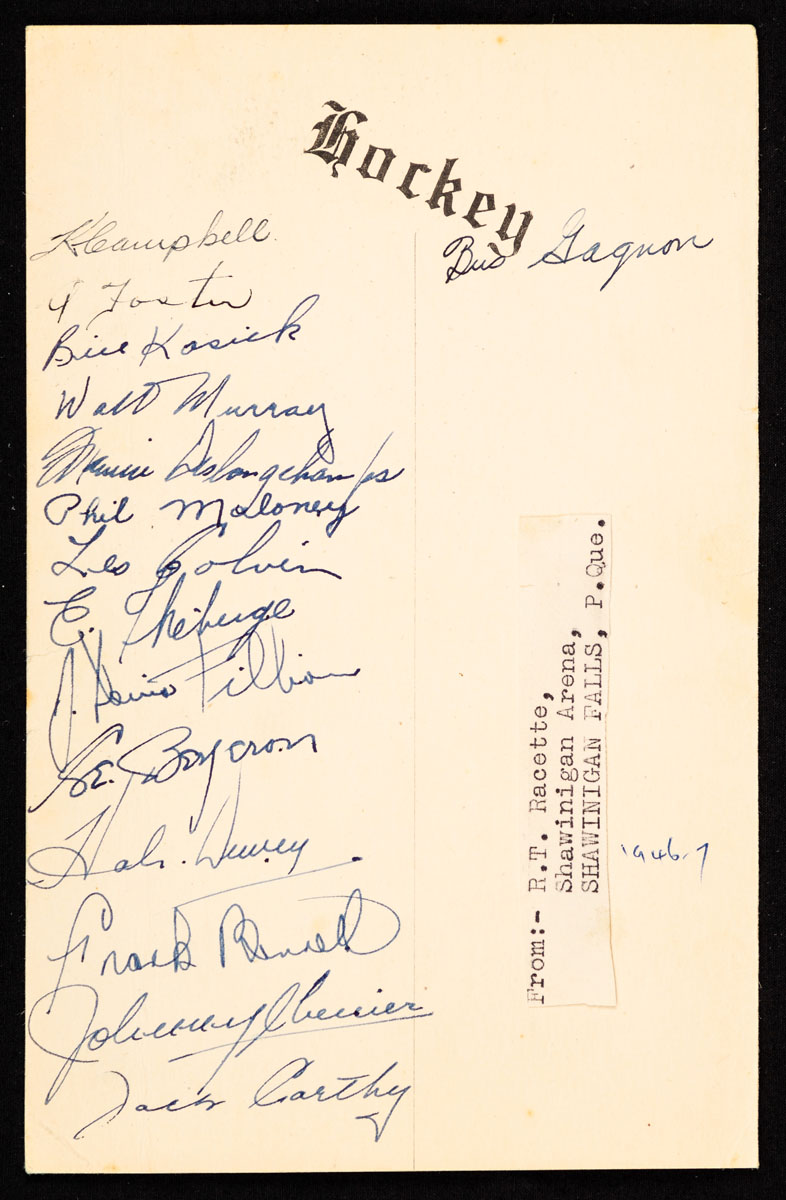 Hockey
K Campbell
Foster
Bill Kosick
Walt Murray
Deslongchamps
Phil Maloney
Les Colvin
E. Theberge
Fillion
Bergeron
Frank Bennett
Johnny Chenier
Jack Carthy
Bud Gagnon
From:- R.T. Racette,
Shawinigan Arena,
SHAWINIGAN FALLS, P.Que.
1946-7